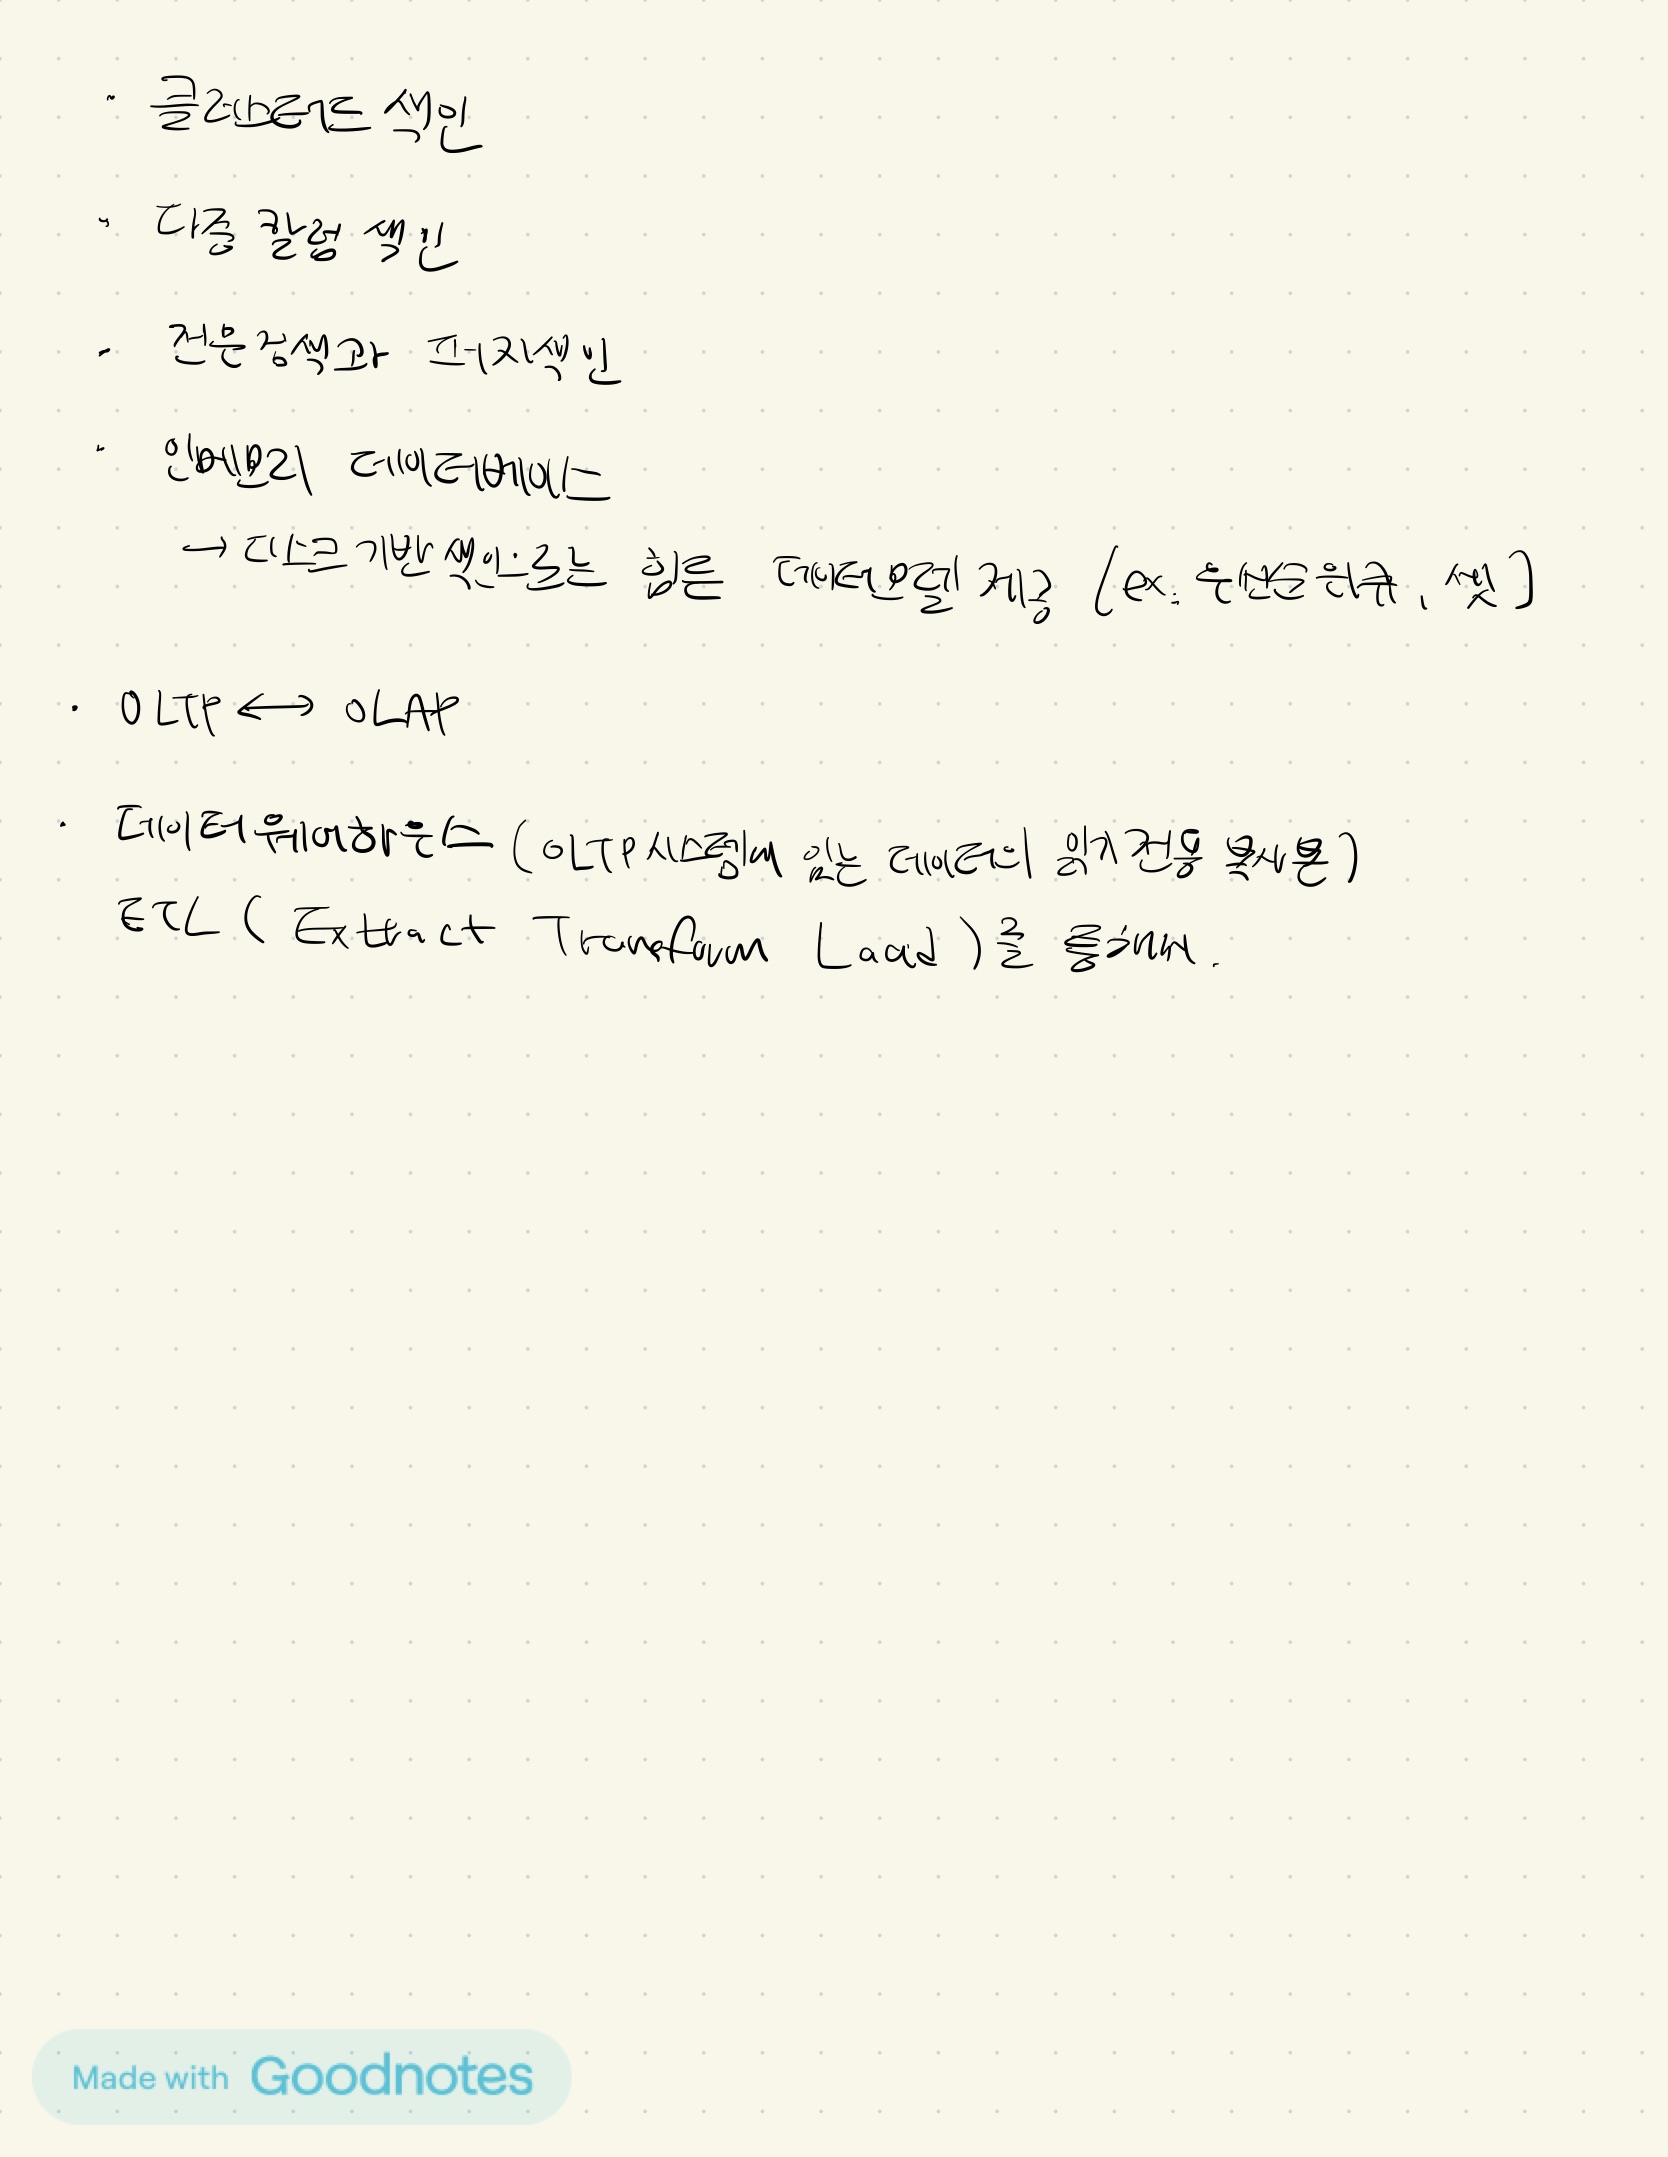 · 클러스터드 색인
· 다중 칼럼 색인
· 전문 검색과 퍼지 색인
· 인메모리 데이터베이스
→ 디스크 기반 색인으로는 힘든 데이터모델 제공 (ex. 우선순위큐, 셋)
· OLTP ↔ OLAP
· 데이터 웨어하우스 (OLTP 시스템에 있는 데이터의 읽기 전용 복사본)
ETL ( Extract Transform Load )를 통해서.
Made with Goodnotes